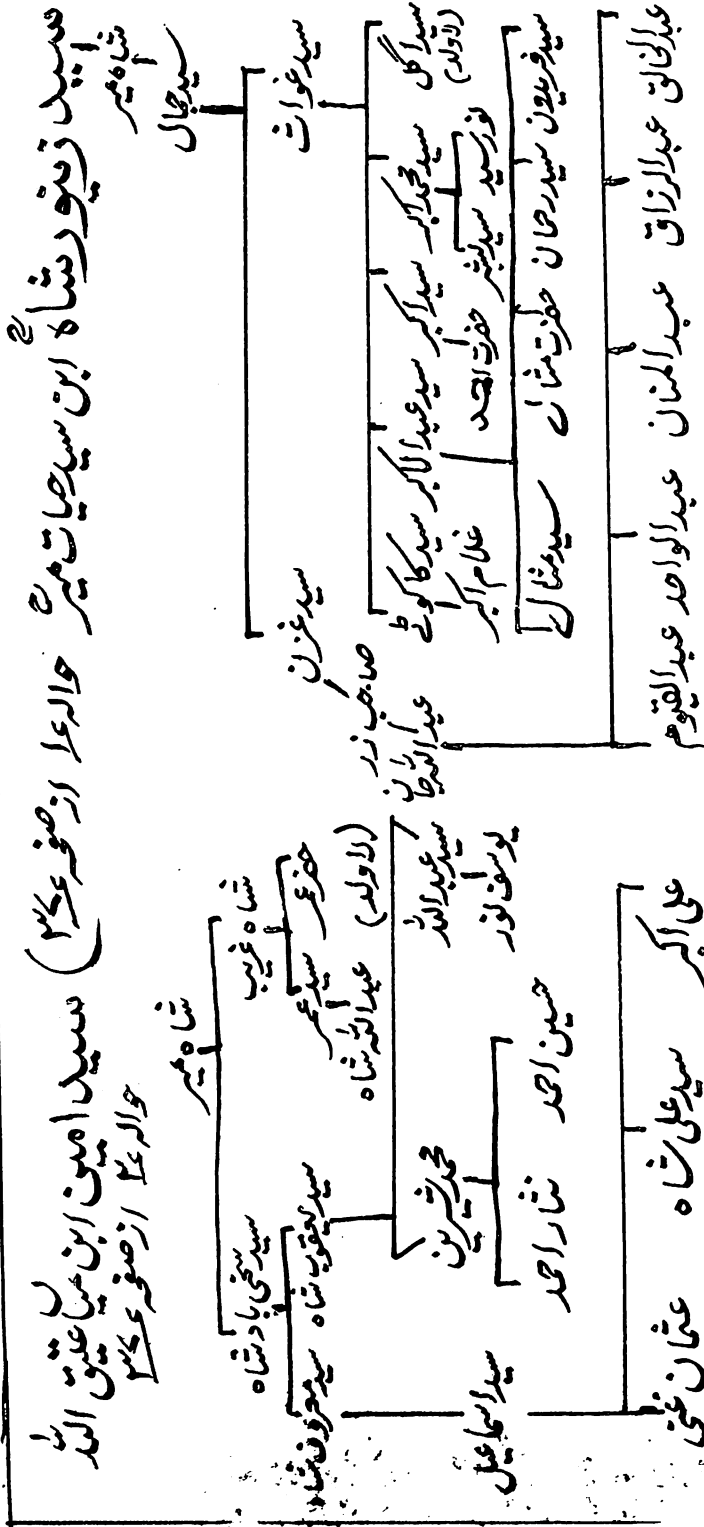 سید زیتود شاہؒ ابن سید حیات میرؒ حوالہ ۱ از صفحہ ۳۷)
شاہ میر
سید جمال
سید غواث
سید غزن
سید گل
(لاولد)
سید محمد اکبر
سید اکبر
سید عبدالاکبر
سید کاکوٹے
نور سید
سید بشر
حضرت احمد
غلام اکبر
سید فریدون
سید رحمان
حضرت مثالے
سید مثالے
صاحب زر
عبداللہ جان
عبدالخالق
عبدالرزاق
عبدالمنان
عبدالواحد
عبدالقیوم
سید امین ابن میاں عتیق اللہ
حوالہ ۲ از صفحہ ۳۷
شاہ میر
شاہ غریب
سید سخی بادشاہ
خضر عمر
سید عمر
(لاولد)
عبداللہ شاہ
سید یعقوب شاہ
سید معروف شاہ
سید عبداللہ
یوسف نور
محمد شیرین
سید اسماعیل
حسین احمد
نثار احمد
علی اکبر
سید علی شاہ
عثمان غنی